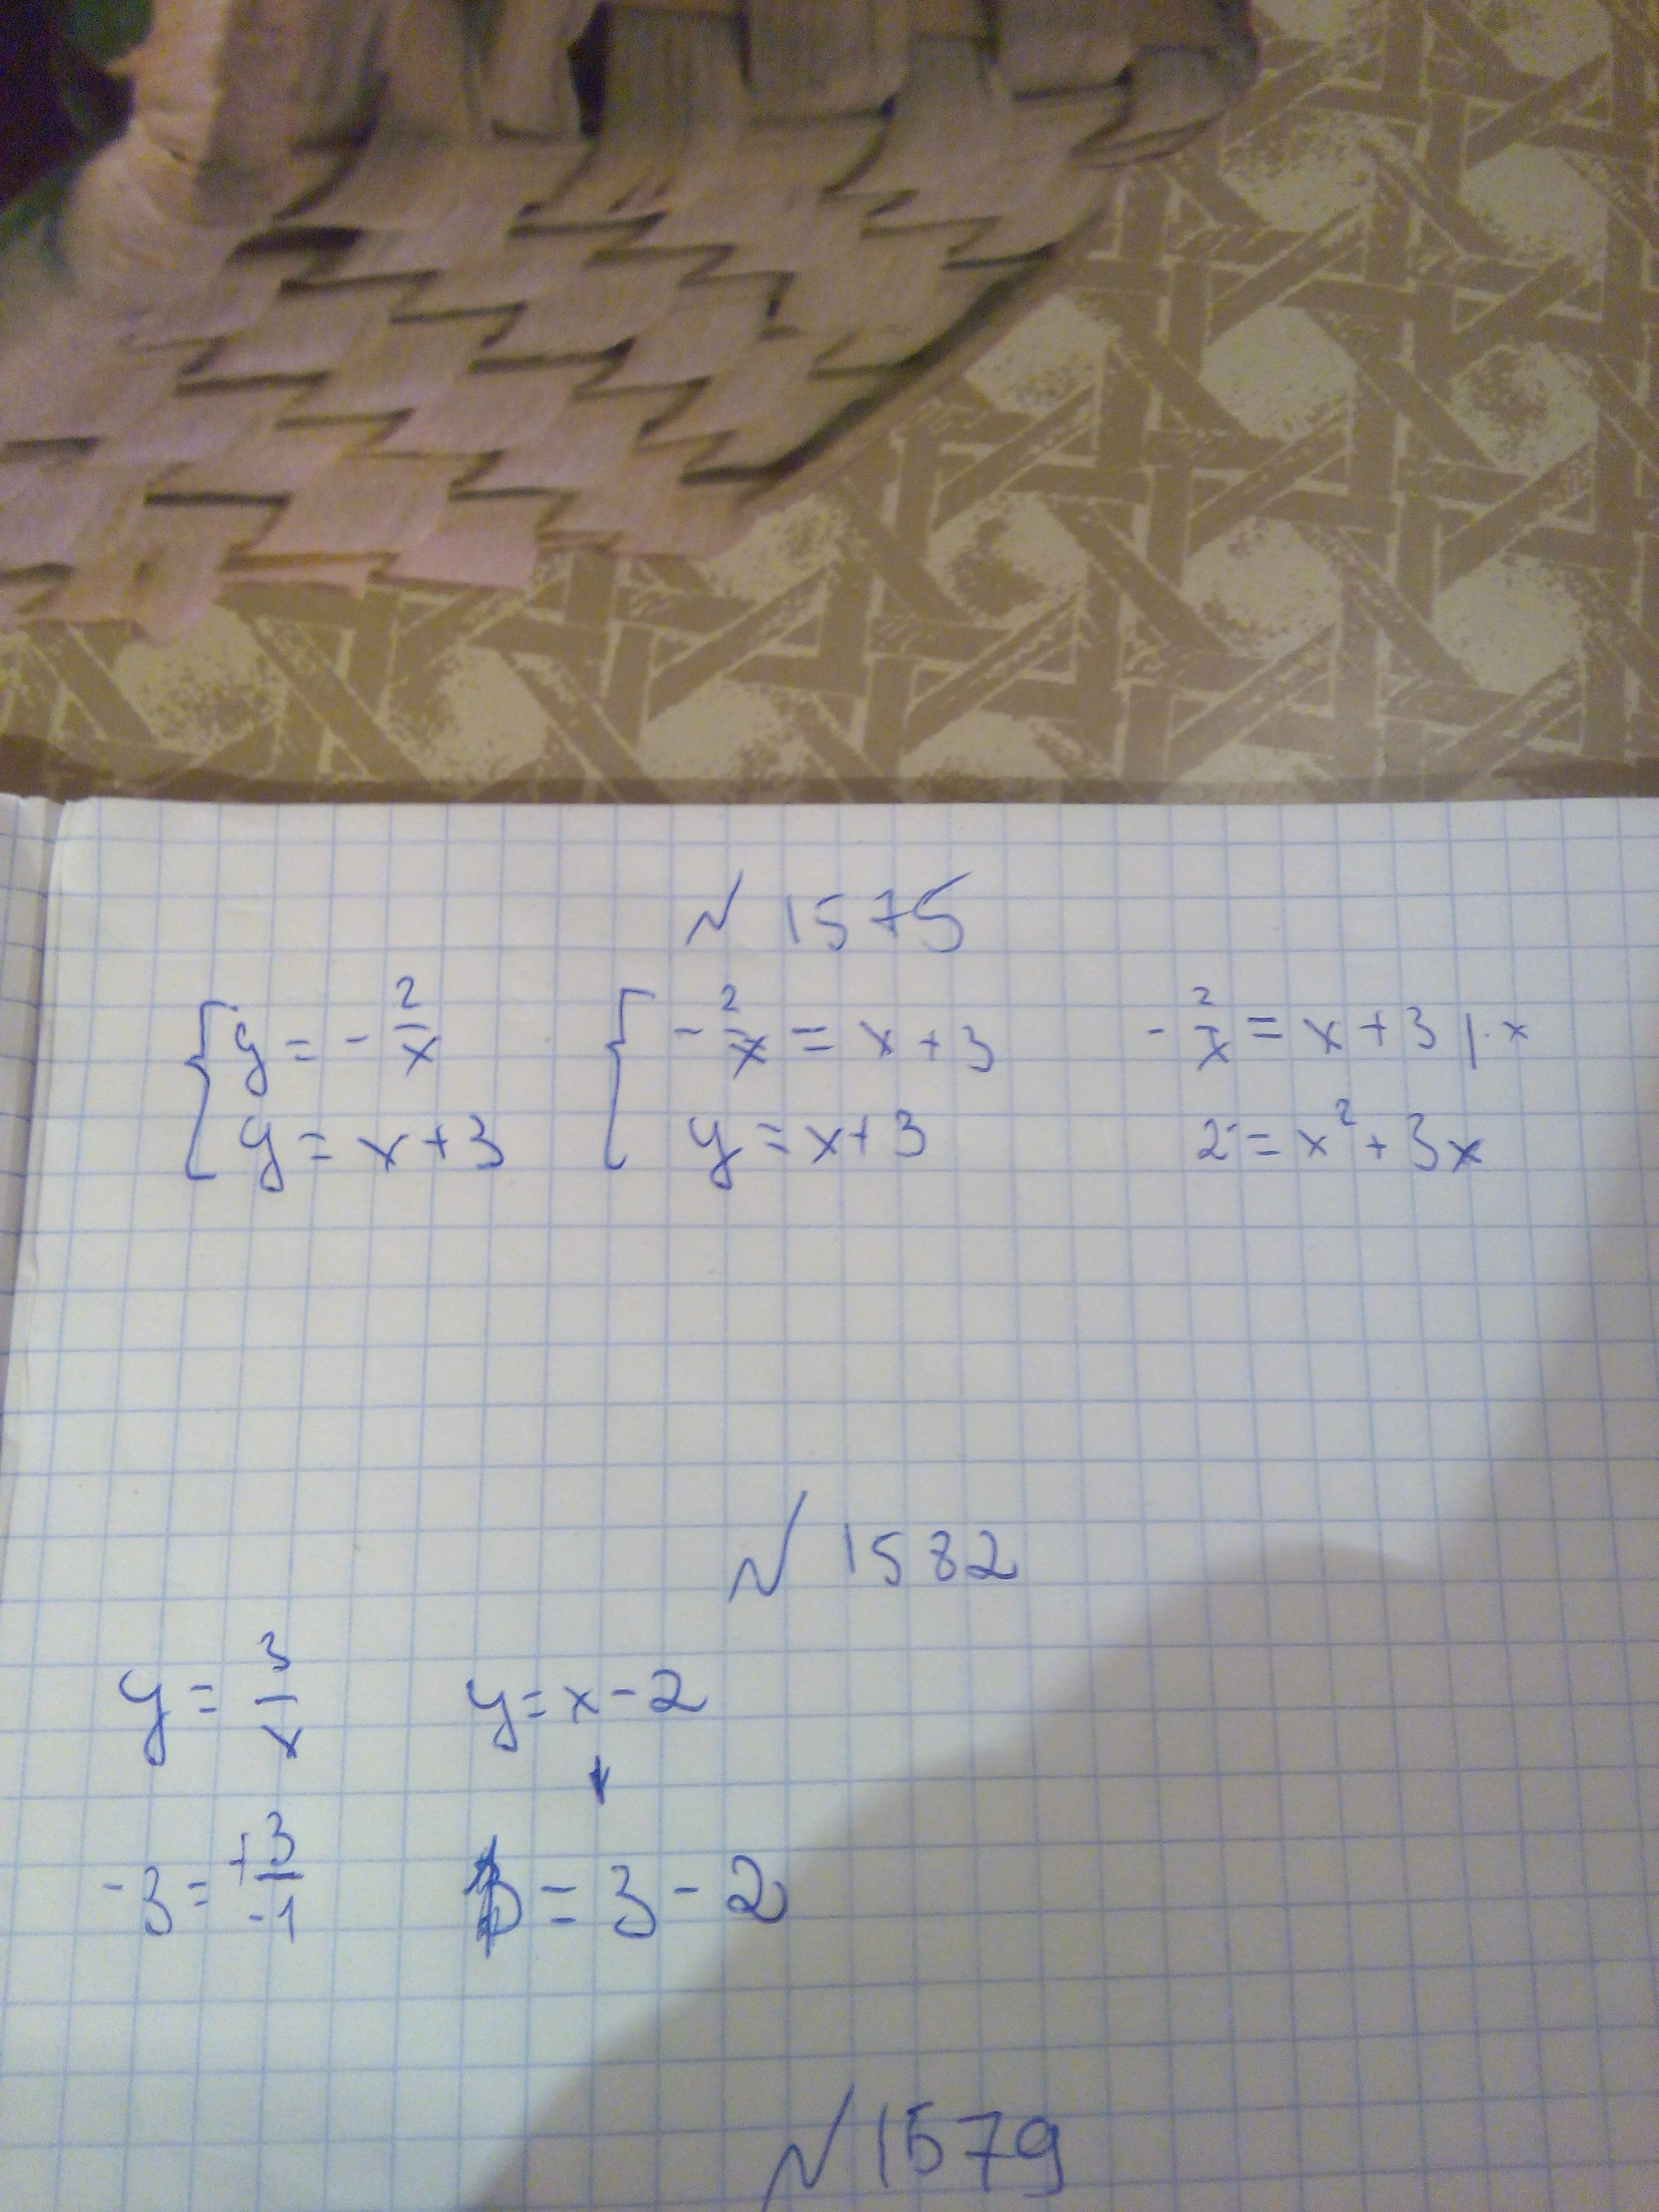 N 1575
{ y = - 2/x { - 2/x = x + 3 - 2/x = x + 3 | · x
y = x + 3 y = x + 3 2 = x² + 3x
N 1582
y = 3/x y = x - 2
-3 = +3/-1 = 3 - 2
N 1579